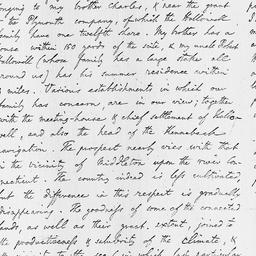 onging to my brother Charles, & near the grant
to the Plymouth company, of which the Hallowell
family have one twelfth share. My brother has a
house within 150 yards of the scite, & my uncle Robert
Hallowell (whose family has a large stake all
around us) has his summer residence within
miles. Various establishments in which our
family has concern are in our view; together
with the meeting-house & chief settlement of Hallo-
well, and also the head of the Kennebeck
navigation. The prospect nearly vies with that
in the vicinity of Middleton upon the river Con-
necticut. The country indeed is less cultivated,
but the difference in this respect is gradually
disappearing. The goodness of some of the connected
lands, as well as their great extent, joined to
the productiveness & salubrity of the climate, &